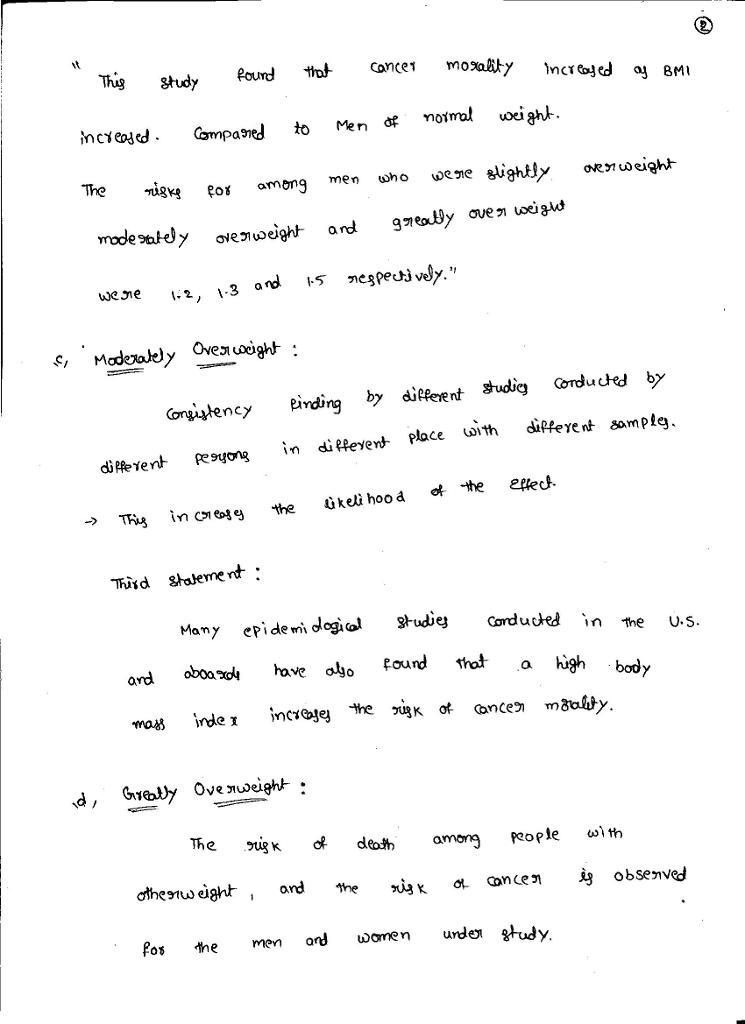 2
" This study found that cancer morality increased as BMI
increased. Compared to Men of normal weight.
The risks for among men who were slightly overweight
moderately overweight and greatly over weight
were 1.2, 1.3 and 1.5 respectively."
c, Moderately Overweight :
Consistency finding by different studies conducted by
different persons in different place with different samples.
→ This increases the likelihood of the effect.
Third statement :
Many epidemiological studies conducted in the U.S.
and aboards have also found that a high body
mass index increases the risk of cancer morality.
d, Greatly Overweight :
The risk of death among people with
otherweight, and the risk of cancer is observed
for the men and women under study.